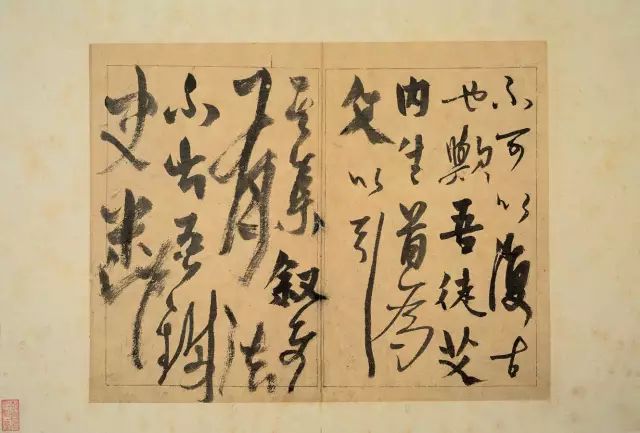 不可以復古
也歟吾徒艾
内生首為
文以引
其集叙
有法
不出吾
史米芾